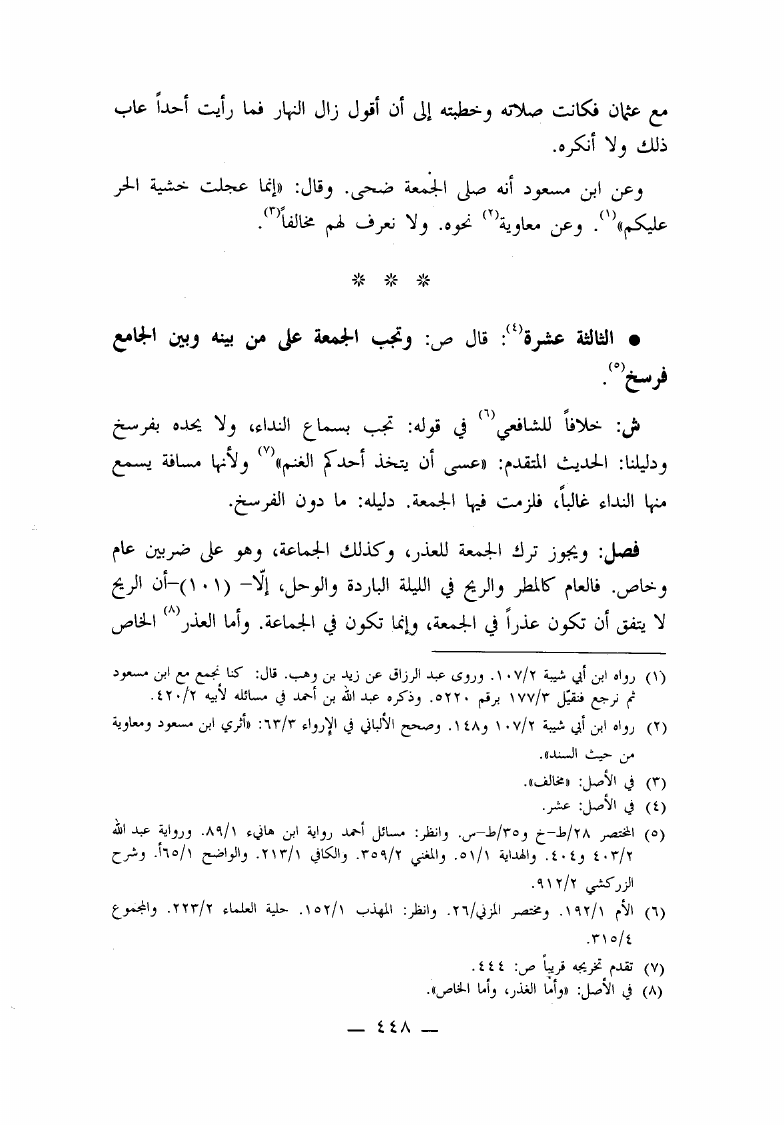 مع عثمان فكانت صلاته وخطبته إلى أن أقول زال النهار فما رأيت أحداً عاب
ذلك ولا أنكره.
وعن ابن مسعود أنه صلى الجمعة ضحى. وقال: «إنما عجلت خشية الحر
عليكم»(١). وعن معاوية(٢) نحوه. ولا نعرف لهم مخالفاً(٣).
* * *
● الثالثة عشرة(٤): قال ص: وتجب الجمعة على من بينه وبين الجامع
فرسخ(٥).
ش: خلافاً للشافعي(٦) في قوله: تجب بسماع النداء، ولا يحده بفرسخ
ودليلنا: الحديث المتقدم: «عسى أن يتخذ أحدكم الغنم»(٧) ولأنها مسافة يسمع
منها النداء غالباً، فلزمت فيها الجمعة. دليله: ما دون الفرسخ.
فصل: ويجوز ترك الجمعة للعذر، وكذلك الجماعة، وهو على ضربين عام
وخاص. فالعام كالمطر والريح في الليلة الباردة والوحل، إلّا– (١٠١)–أن الريح
لا يتفق أن تكون عذراً في الجمعة، وإنما تكون في الجماعة. وأما العذر(٨) الخاص
(١) رواه ابن أبي شيبة ١٠٧/٢. وروى عبد الرزاق عن زيد بن وهب. قال: كنا نجمع مع ابن مسعود
ثم نرجع فنقيّل ١٧٧/٣ برقم ٥٢٢٠. وذكره عبد الله بن أحمد في مسائله لأبيه ٤٢٠/٢.
(٢) رواه ابن أبي شيبة ١٠٧/٢ و١٤٨. وصحح الألباني في الإرواء ٦٣/٣: «أثري ابن مسعود ومعاوية
من حيث السند».
(٣) في الأصل: «مخالف».
(٤) في الأصل: عشر.
(٥) المختصر ٢٨/ط–خ و٣٥/ط–س. وانظر: مسائل أحمد رواية ابن هانىء ٨٩/١. ورواية عبد الله
٤٠٣/٢ و٤٠٤. والهداية ٥١/١. والمغني ٣٥٩/٢. والكافي ٢١٣/١. والواضح ٦٥/١أ. وشرح
الزركشي ٩١٢/٢.
(٦) الأم ١٩٢/١. ومختصر المزني/٢٦. وانظر: المهذب ١٥٢/١. حلية العلماء ٢٢٣/٢. والمجموع
٣١٥/٤.
(٧) تقدم تخريجه قريباً ص: ٤٤٤.
(٨) في الأصل: «وأما الغذر، وأما الخاص».
— ٤٤٨ —